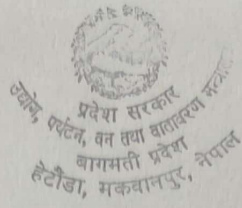 प्रदेश सरकार
उद्योग, पर्यटन, वन तथा वातावरण मन्त्रालय
बागमती प्रदेश
हेटौडा, मकवानपुर, नेपाल